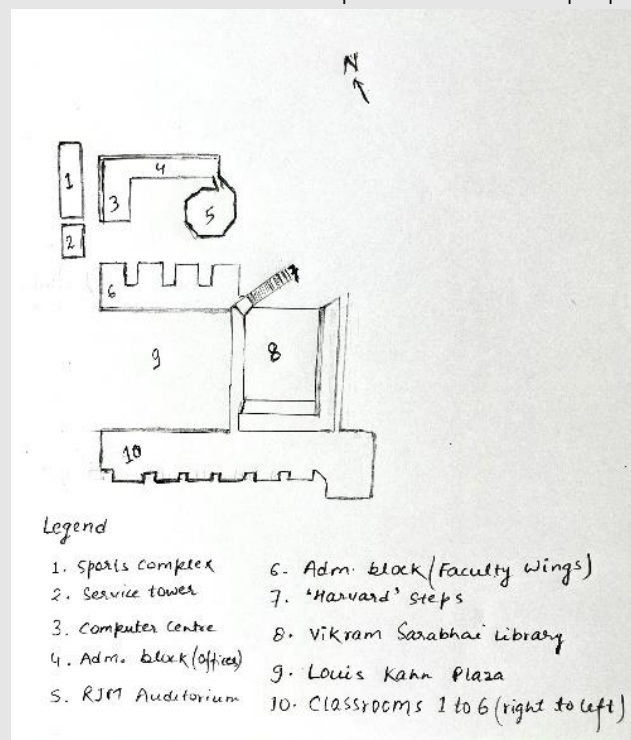 N
1
4
3
5
2
6
7
9
8
10
Legend
1. Sports Complex
2. Service tower
3. Computer Centre
4. Adm. block (offices)
5. RJM Auditorium
6. Adm. block (Faculty Wings)
7. 'Harvard' steps
8. Vikram Sarabhai Library
9. Louis Kahn Plaza
10. Classrooms 1 to 6 (right to left)